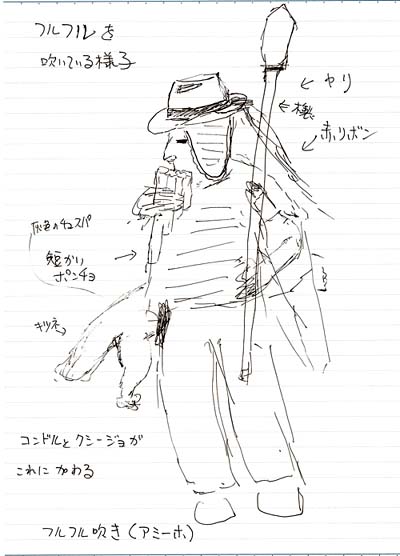 フルフルを
吹いている様子
← ヤリ
← 棒
赤リボン
灰色のチュスパ
短かい →
ポンチョ
キツネ
コンドルとクシージョが
これに加わる
フルフル吹き(アミーホ)